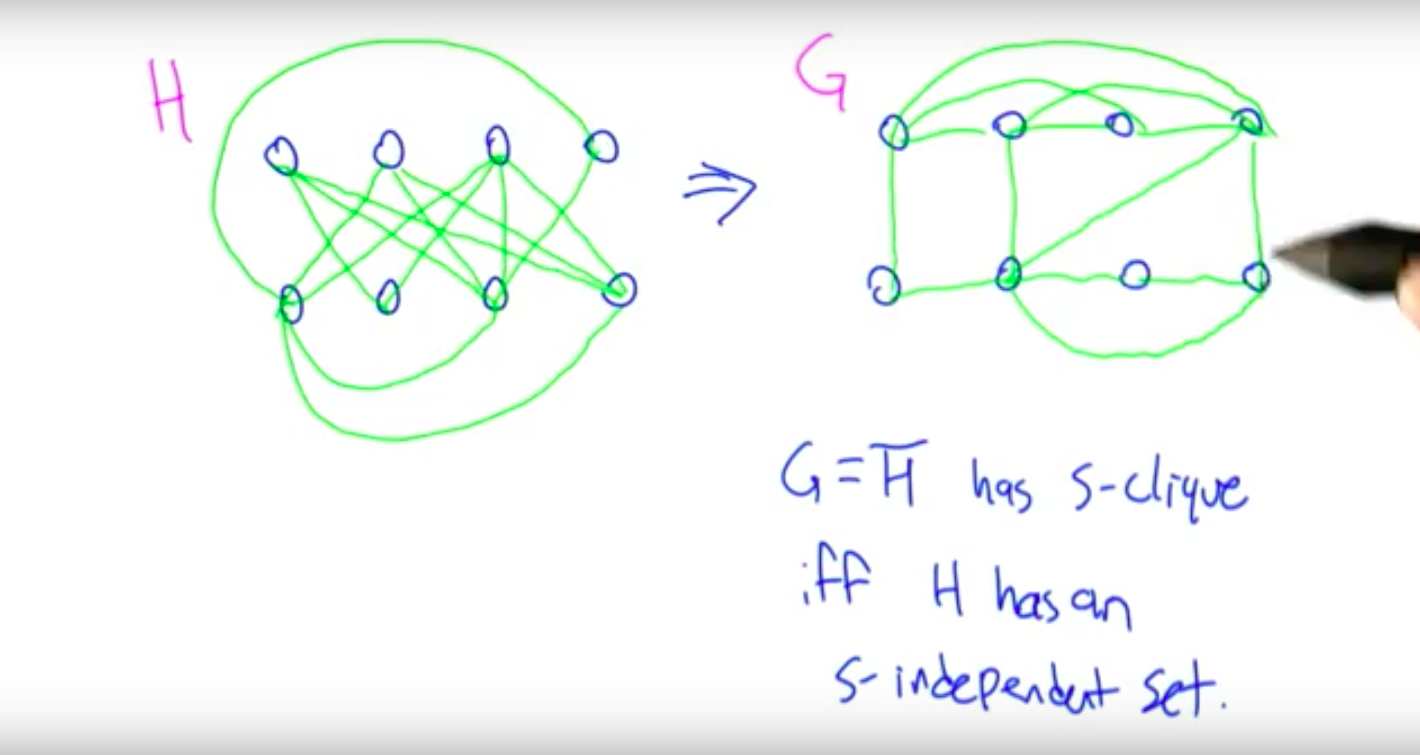 H
G
⇒
G = H̅ has s-clique
iff H has an
s-independent set.